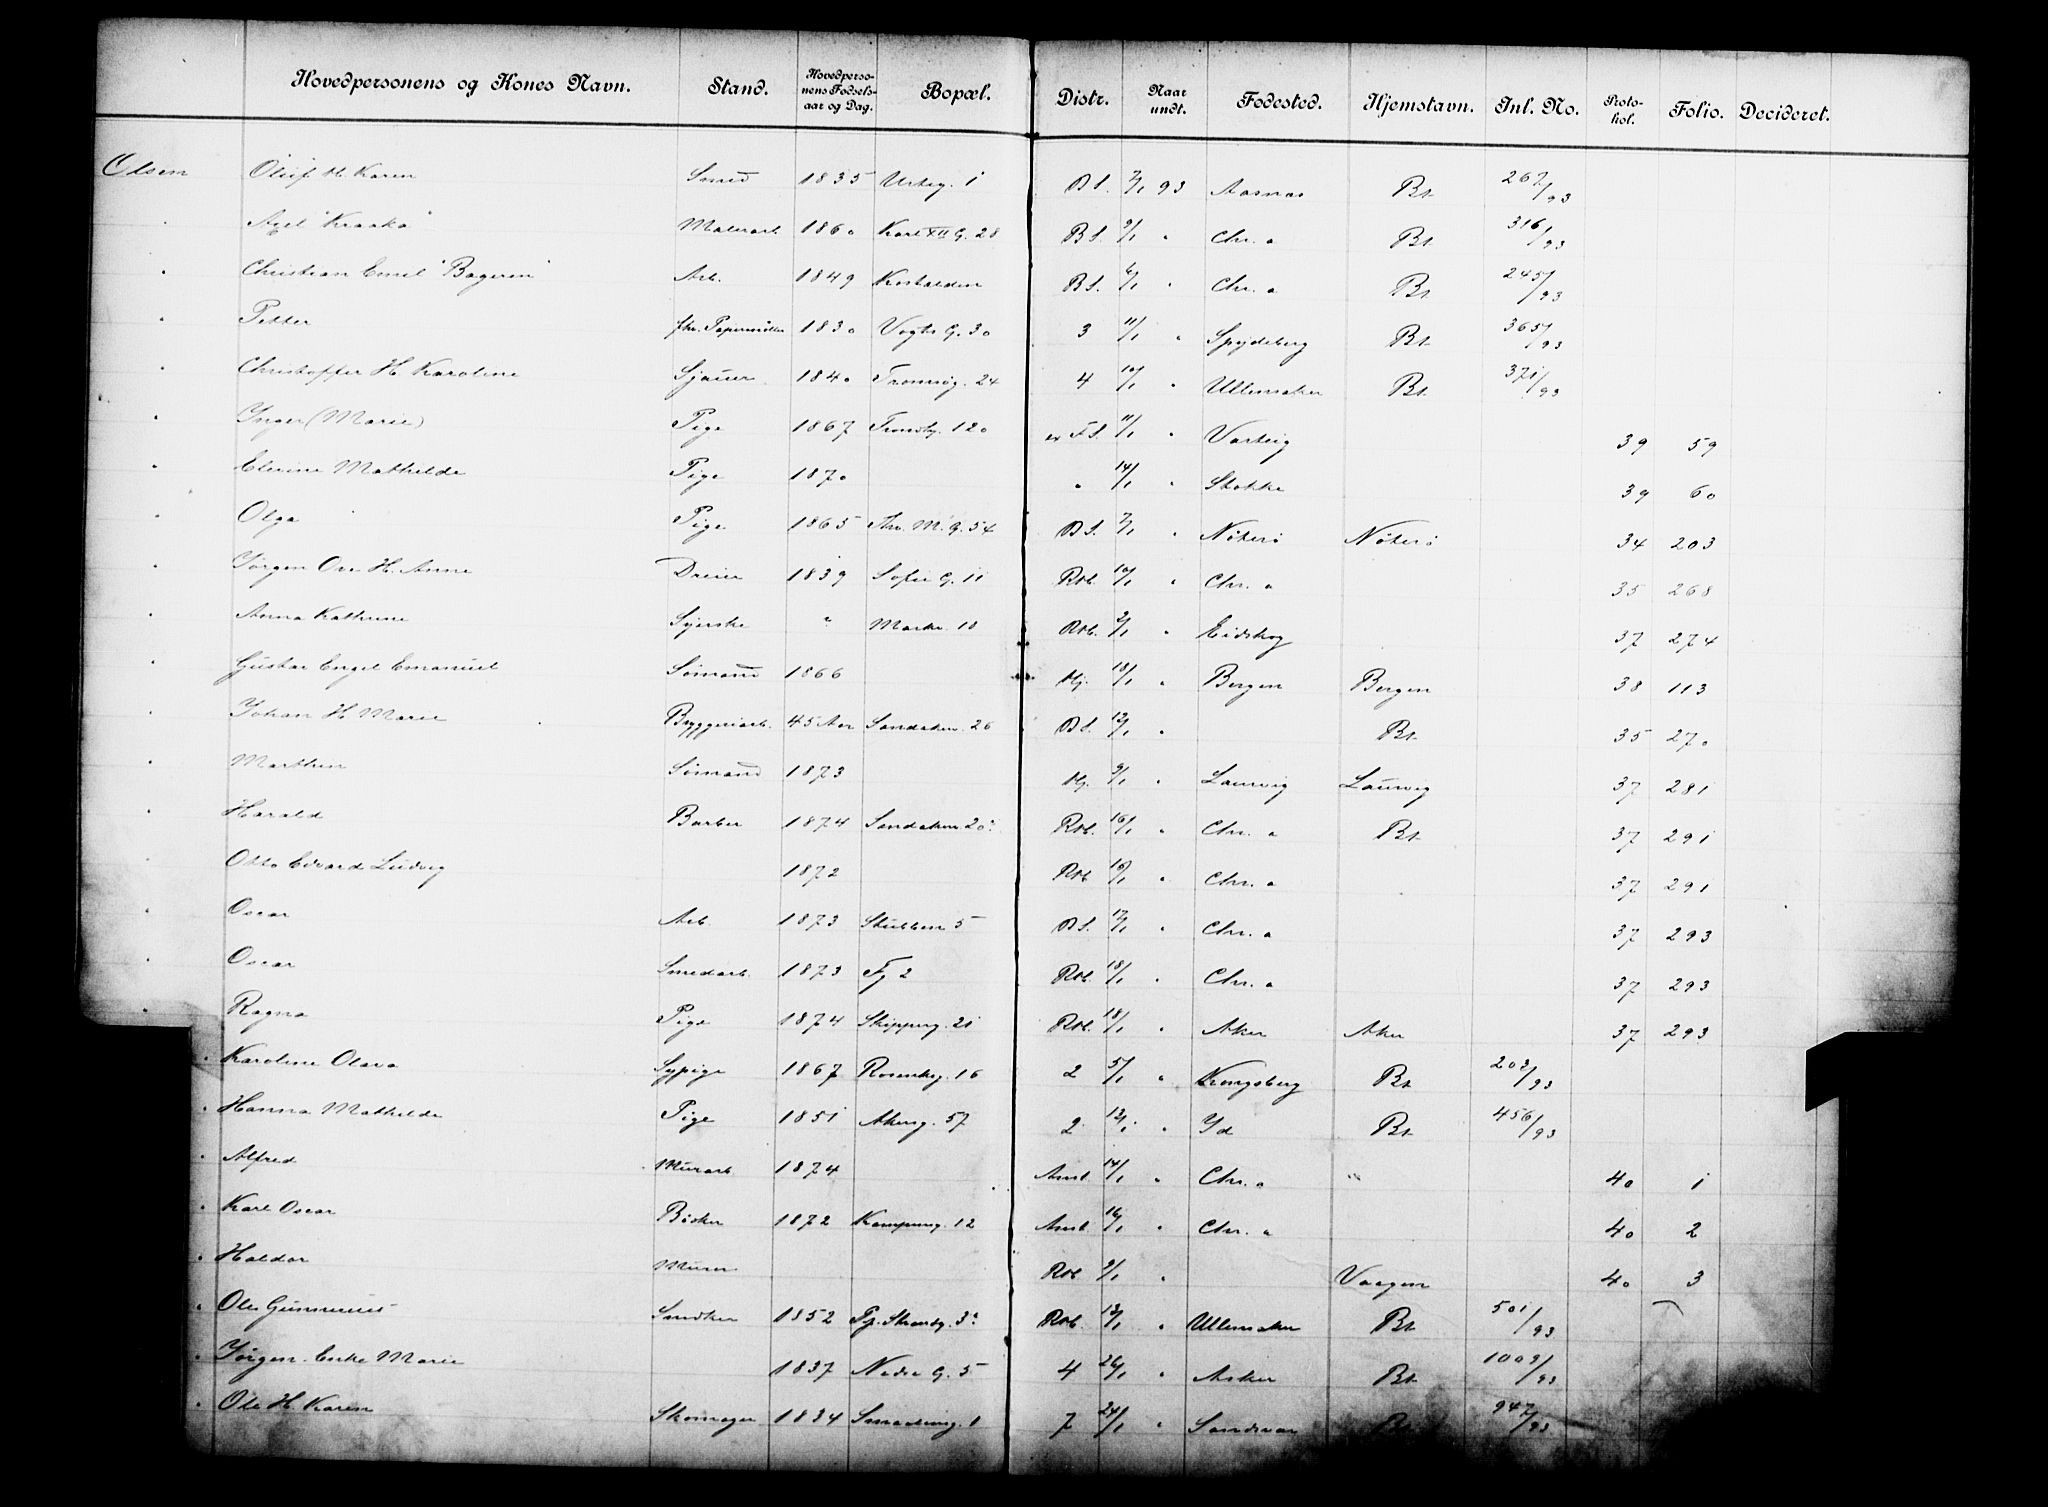 Hovedpersonens og Kones Navn. Stand. Hovedperso-nens Fødsels-aar og Dag. Bopæl. Distr. Naar undt. Fødested. Hjemstavn. Inl. No. Proto-kol. Folio. Decideret.
Olsen Oluf H. Karen Smed 1835 Urteg. 1 B S. 7/1 93 Aasnes Bt 267/93
" Axel "Kraaka" Malerarb. 1860 Karl XII G. 28 B S. 9/1 " Chr. a Bt. 316/93
" Christian Emil "Bageren" Arb. 1849 B S. 6/1 " Chr. a Bt 245/93
" Petter 1830 Vogts G. 30 3 11/1 " Spydeberg Bt 365/93
" Christoffer H. Karoline Sjauer. 1840 Tromsøg. 24 4 10/1 " Ullensaker Bt 371/93
" Inger (Marie) Pige 1867 Trondhj. 120 ex F S. 11/1 " Varteig 39 59
" Elvine Mathilde Pige 1870 " 14/1 " Stokke 39 60
" Olga Pige 1865 Thv. M. G. 54 B S. 7/1 " Nøterø Nøterø 34 203
" Jørgen Ove H. Anne Dreier 1839 Sofie G. 11 Rtb. 10/1 " Chr. a 35 268
" Anna Kathrine Syerske " Markv. 10 Rtb. 2/1 " Eidskog 37 274
" Gustav Engel Emanuel Sømand 1866 Hj. 18/1 " Bergen Bergen 38 113
" Johan H. Marie Bryggeriarb. 45 Aar Sandakerv. 26 B S. 12/1 " Bt 35 270
" Marthin Sømand 1873 Hj. 9/1 " Laurvig Laurvig 37 281
" Harald Barber 1874 Sandakerv. 20 Rtb. 16/1 " Chr. a Bt 37 291
" Otto Edvard Ludvig 1872 Rtb 16/1 " Chr. a 37 291
" Oscar Arb. 1873 Stubben 5 B S. 17/1 " Chr. a 37 293
" Oscar Smedarb. 1873 Fg 2 Rtb. 18/1 " Chr. a 37 293
" Ragna Pige 1874 Skipperg. 21 Rtb. 18/1 " Aker Aker 37 293
" Karoline Olava Sypige 1867 Rosenkrg. 16 2 5/1 " Kongsberg Bt 203/93
" Hanna Mathilde Pige 1851 Akersg. 57 2 12/1 " Id Bt 456/93
" Alfred Murarb. 1874 Amt. 14/1 " Chr. a " 40 1
" Karl Oscar Bødker 1872 Kampeng. 12 Amt. 16/1 " Chr. a 40 2
" Haldor Murer Rtb 9/1 " Vaagen 40 3
" Ole Gunnerius Snedker 1852 Rtb. 13/1 " Ullensaker Bt 501/93
" Jørgen Enke Marie 1837 Nedre G. 5 4 26/1 " Asker Bt 1009/93
" Ole H. Karen Skomager 1834 Smedeng. 1 7 24/1 " Sandsvær Bt 947/93